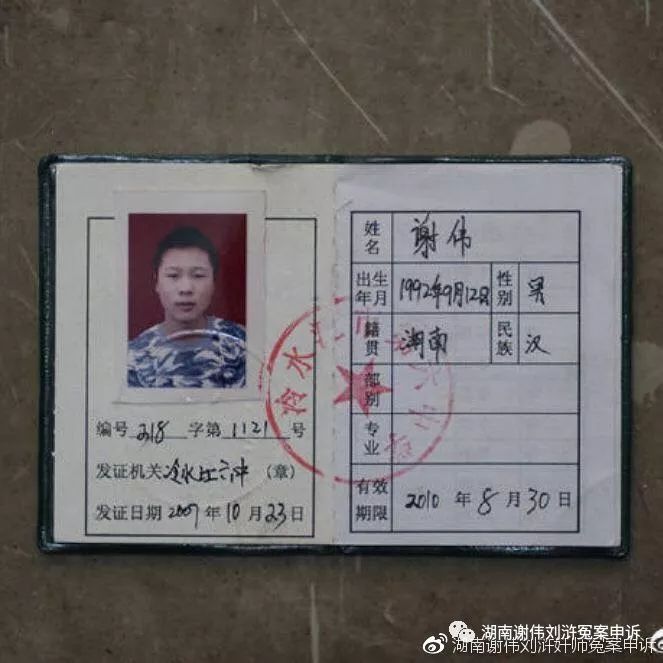 编号 218 字第 1121 号
发证机关 冷水江六中 (章)
发证日期 2007 年 10 月 23 日
姓名 谢伟
出生年月 1992年9月12日 性别 男
籍贯 湖南 民族 汉
部别
专业
有效期限 2010 年 8 月 30 日
冷水江
湖南谢伟刘浒冤案申诉
湖南谢伟刘浒奸师冤案申诉